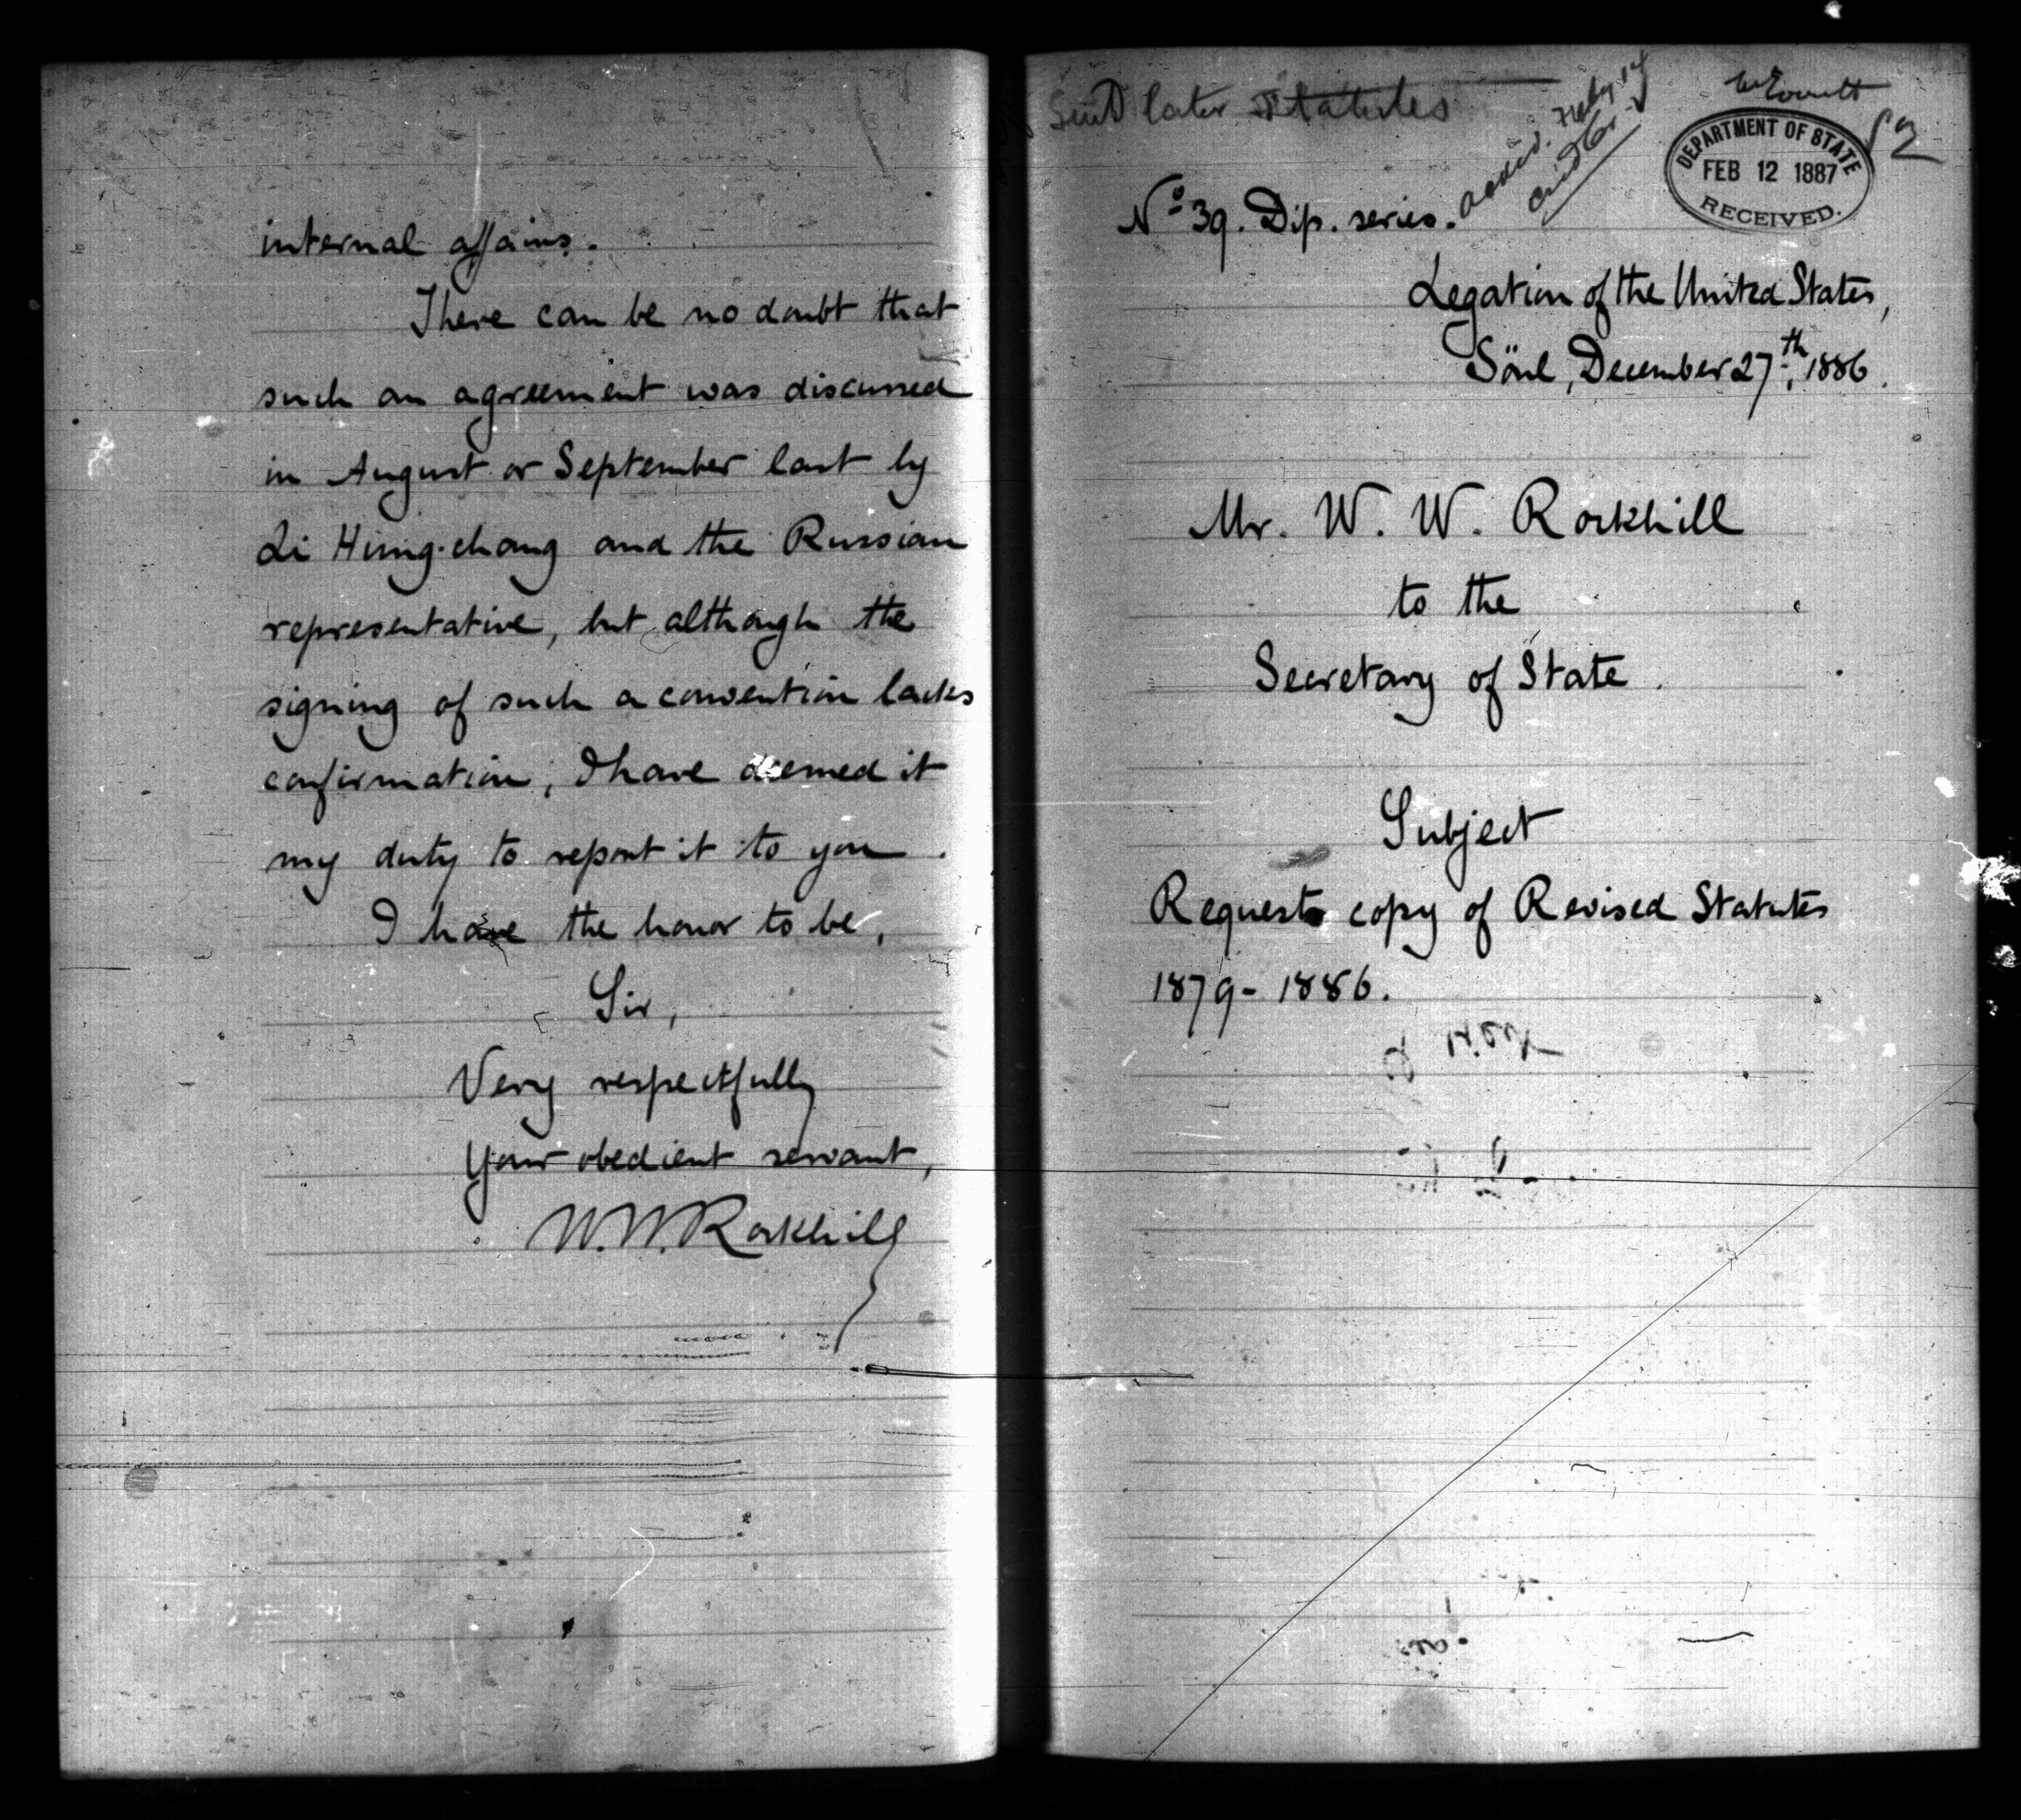 internal affairs.
There can be no doubt that
such an agreement was discussed
in August or September last by
Li Hung-chang and the Russian
representative, but although the
signing of such a convention lacks
confirmation, I have deemed it
my duty to report it to you.
I have the honor to be,
Sir,
Very respectfully
Your obedient servant,
W. W. Rockhill
Sent later Statutes
DEPARTMENT OF STATE
FEB 12 1887
RECEIVED.
No 39. Dip. series.
Legation of the United States,
Söul, December 27th, 1886.
Mr. W. W. Rockhill
to the
Secretary of State.
Subject
Requests copy of Revised Statutes
1879-1886.